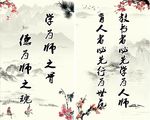 教书者必先学为人师
育人者必先行为世范
学为师之骨
德为师之魂